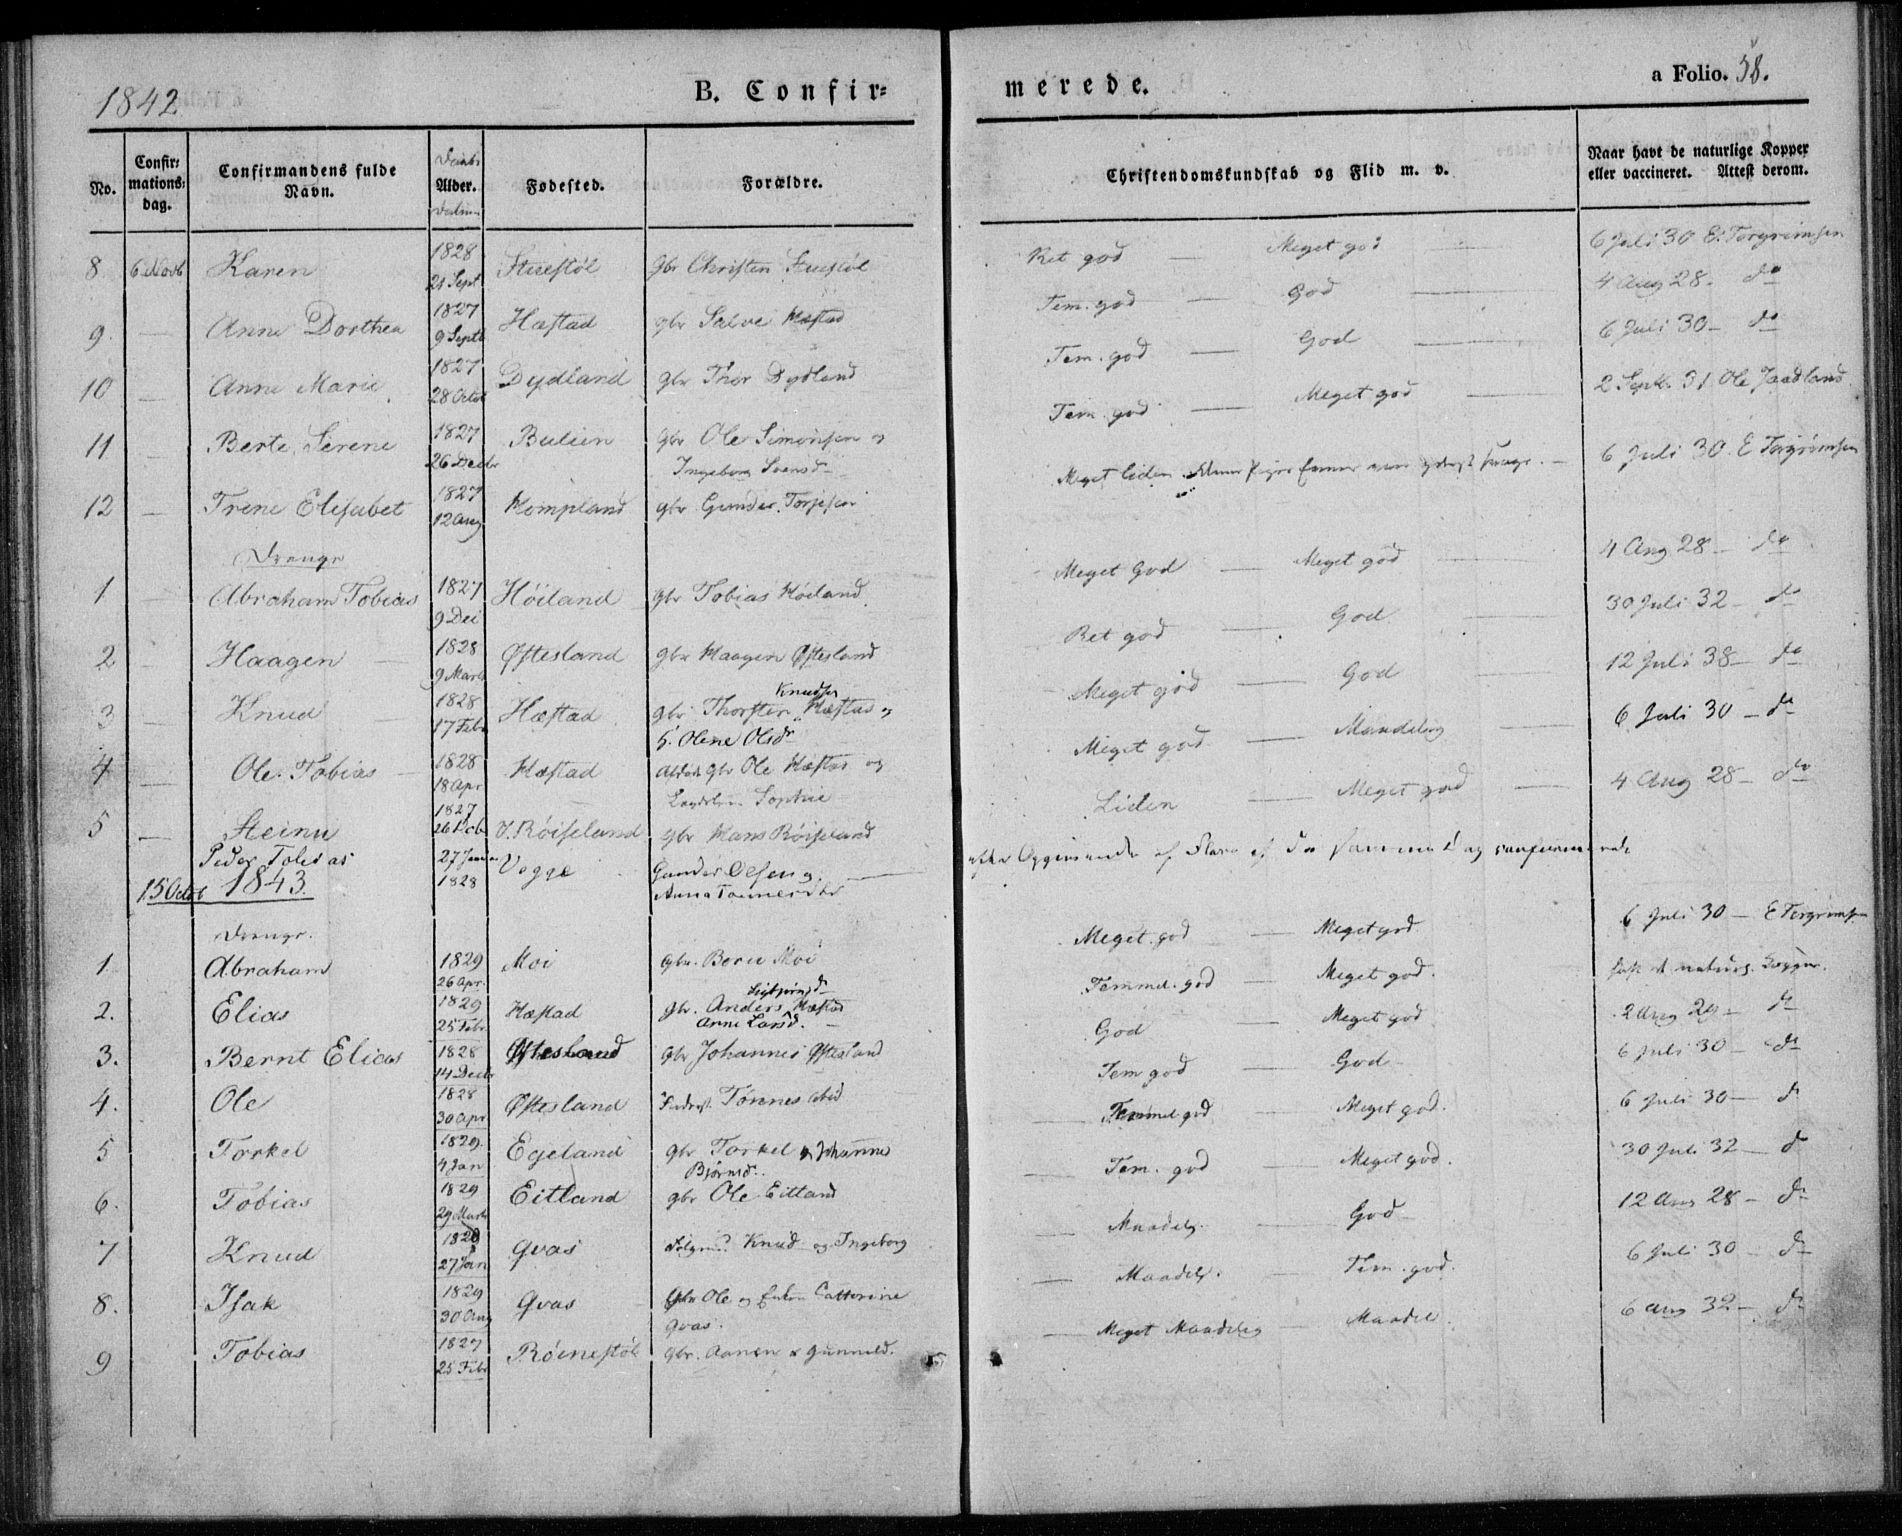 1842
B. Confir=
merede.
a Folio. 38.
No.
Confir= mations= dag.
Confirmandens fulde Navn.
Daabs Alder. Datum
Fødested.
Forældre.
Christendomskundskab og Flid m. v.
Naar havt de naturlige Kopper eller vaccineret. Attest derom.
8 6 Novb Karen 1828 21 Sept Stuestøl Gbr Christen Stuestøl Ret god — Meget god — 6 Juli 30 E. Torgrimsen
9 — Anne Dorthea 1827 9 Septb Hæstad gbr Salve Hæstad Tem. god — God — 4 Aug 28 – do
10 — Anne Marie 1827 28 Octob Dydland gbr Thor Dydland Tem. god — God — 6 Juli 30 – do
11 — Berte Serene 1827 26 Decbr Bulien gbr Ole Simonsen og Ingeborg Svensd– Tem. god — Meget god — 2 Sept. 31 Ole Jaadland
12 — Trene Elisabet 1827 12 Aug Kompland gbr Gunder Torjesen Meget liden — 6 Juli 30. E Torgrimsen
Drenge
1 — Abraham Tobias 1827 9 Dec Høiland gbr Tobias Høiland Meget God — Meget god — 4 Aug 28 – do
2 — Haagen 1828 9 Marts Øftesland gbr Haagen Øftesland Ret god — God 30 Juli 32 – do
3 — Knud 1828 17 Febr Hæstad gbr Thorsten Knudsen Hæstad og h. Olene Olsdr Meget god — God 12 Juli 38 – do
4 — Ole Tobias 1828 18 Apr Hæstad gbr Ole Hæstad og Sophie Meget god — Maadelig — 6 Juli 30 – do
5 — Steinu 1827 26 Dcb V. Røiseland gbr Hans Røiseland Liden — Meget god — 4 Aug 28 – do
Peder Tobias 27 Januar 1828 Vegge Gunder Olsen og Anna Tønnesdtr af
15 Octob 1843.
Drenge.
1 Abraham 1829 26 Apr. Moi gbr. Beru Moi Meget god — Meget god 6 Juli 30 – E Torgrimsen
2. Elias 1829 25 Febr Hæstad gbr. Anders Hæstad Anne Larsd. – Temmel. god — Meget god.
3. Bernt Elias 1828 14 Decbr Øftesland gbr Johannes Øftesland God — Meget god 2 Aug 29 – do
4. Ole 1828 30 Apr Øftesland Tønnes ibid Tem god — God – 6 Juli 30 – do
5 Torkel 1829. 4 Jan Egeland gbr Torkel & Johanne Bjørnsd. Temmel god — Meget god. 6 Juli 30 – do
6. Tobias 1829 29 Marts Eitland gbr Ole Eitland — Tem. god — Meget god. 30 Juli 32 – do
7 Knud 27 Jan Gvas Knud og Ingeborg — Maadelg. — God 12 Aug 28 – do
8. Isak 1829 30 Aug Gvas Gbr Ole og Catterine Gvas. — Maadel. — Tem. god. 6 Juli 30 – do
9 Tobias 1827 25 Febr Røinestøl gbr. Aanen & Gunnild. — Meget Maadelig — Maadel. 6 Aug 32 – do